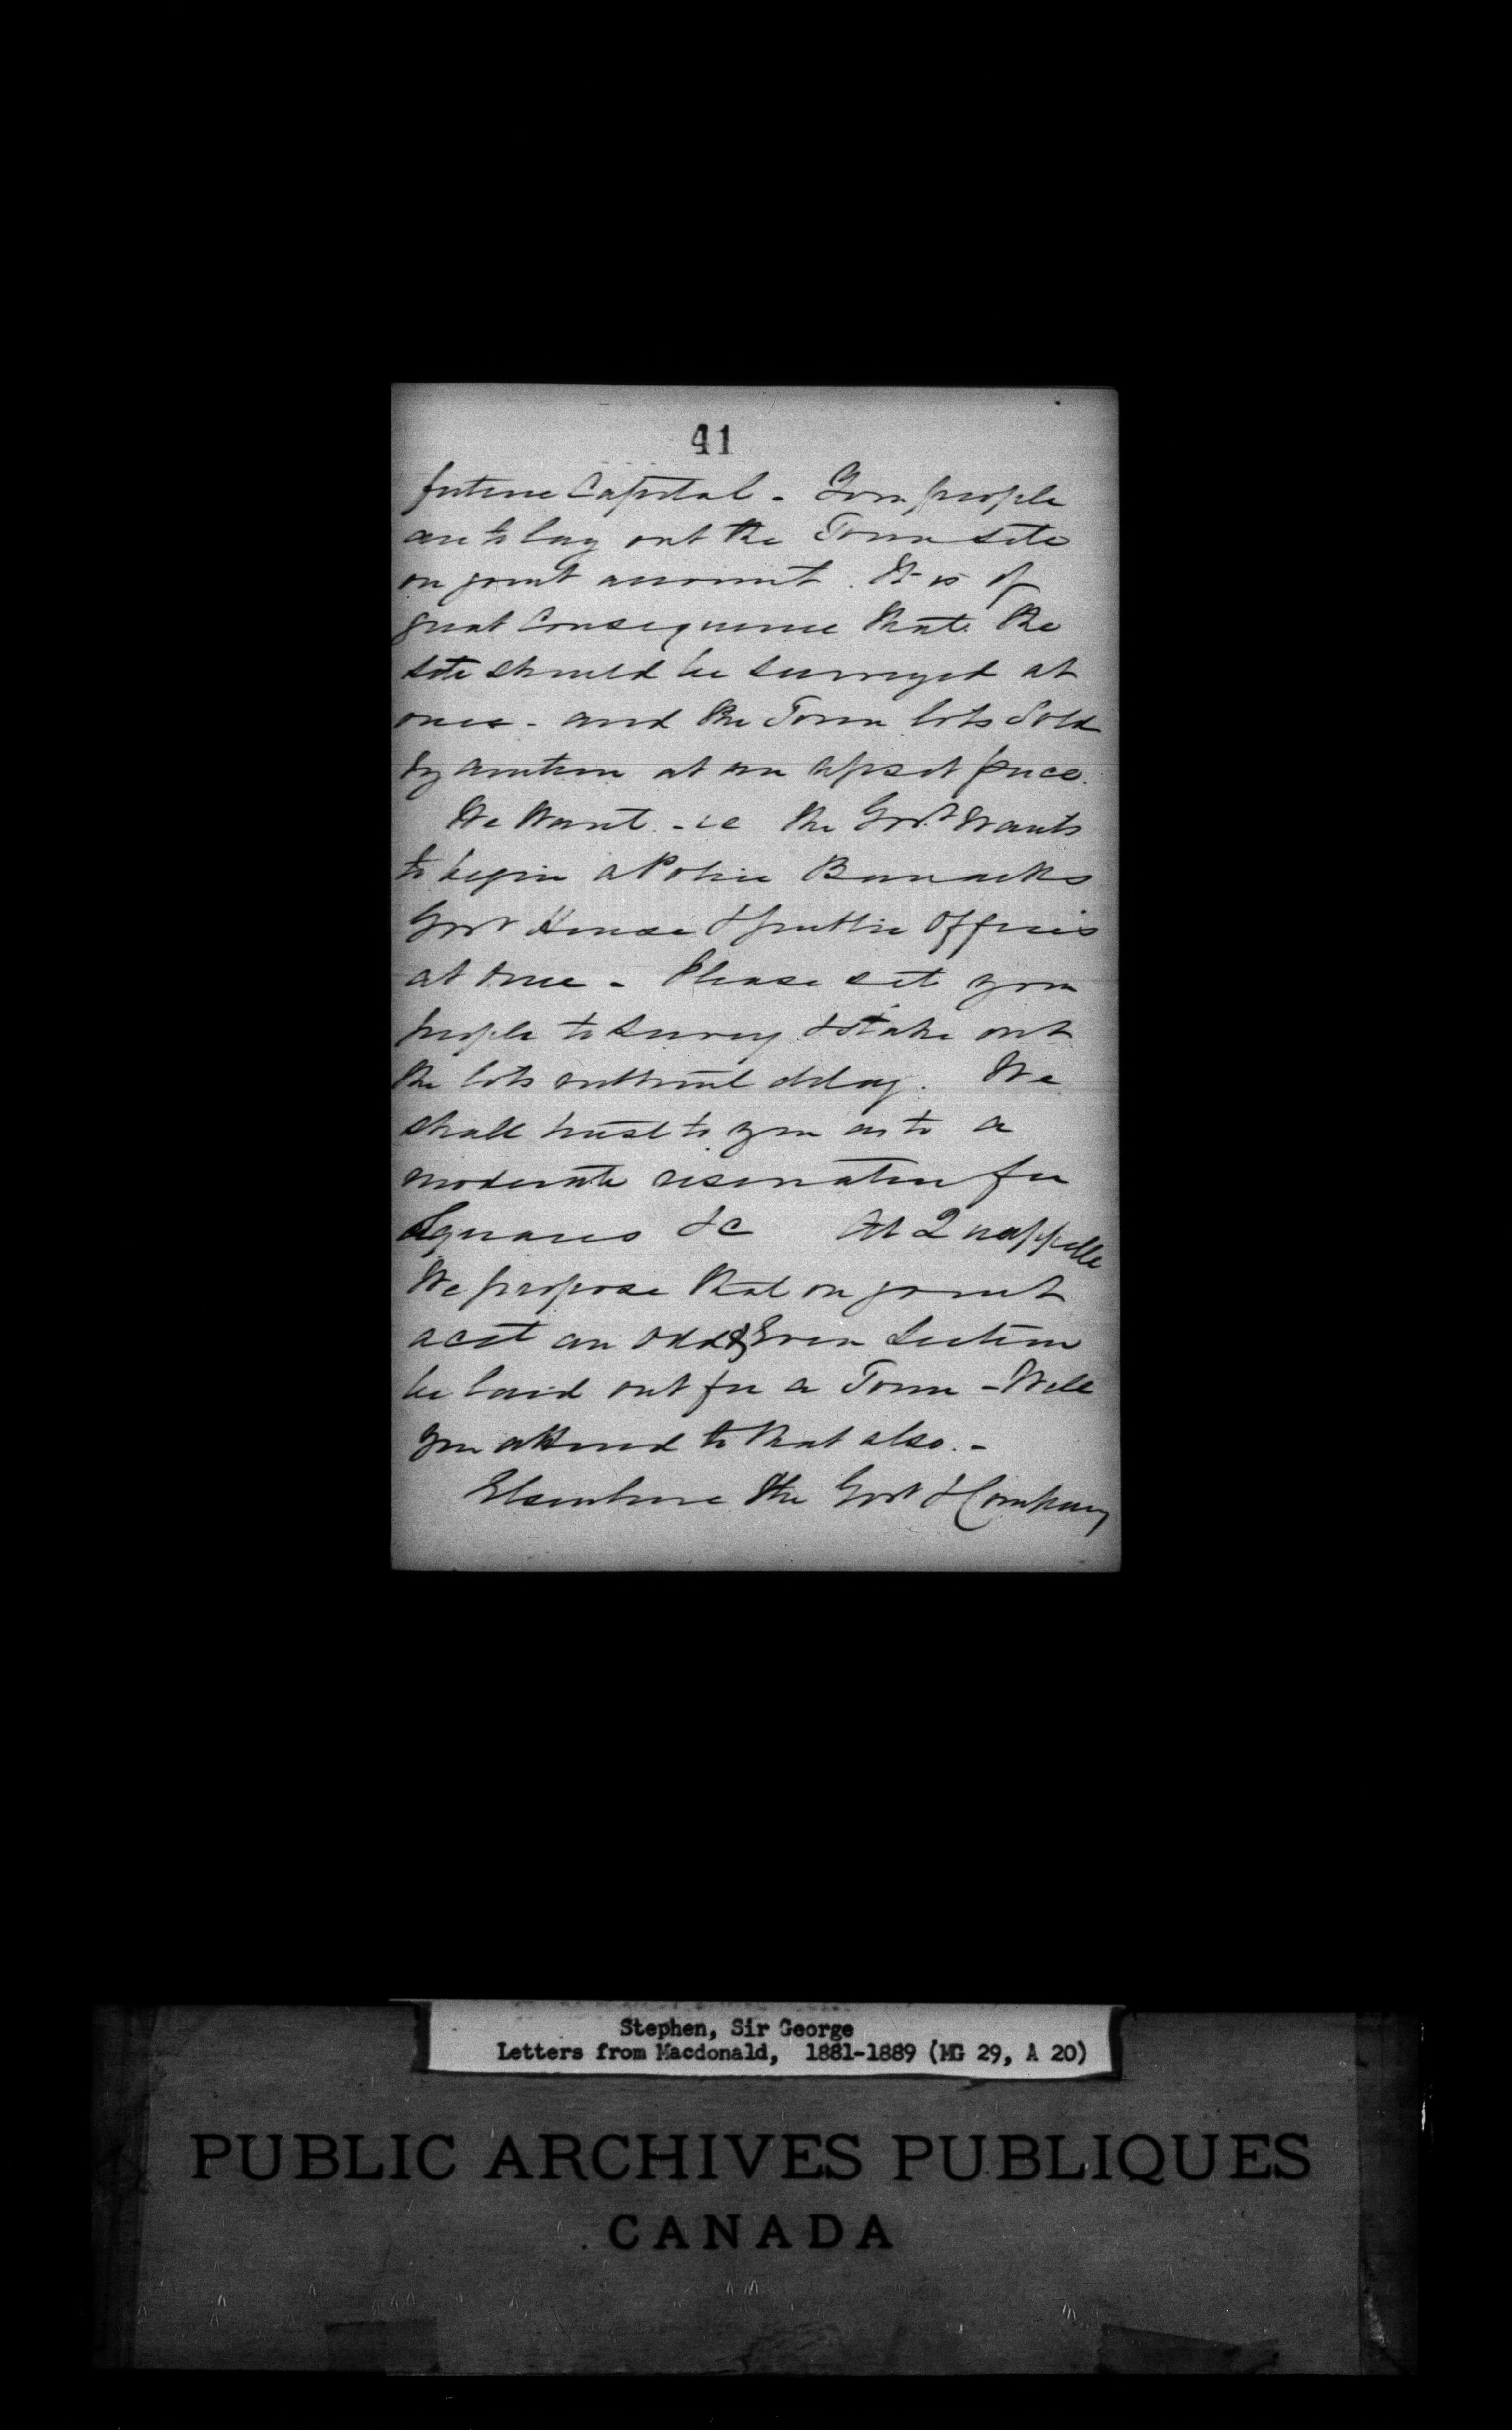 41
future Capital - Your people
are to lay out the Town site
on joint account. It is of
great Consequence that the
site should be surveyed at
once - and the Town lots Sold
by auction at an upset price.
We Want - ie the Govt Wants
to begin a Police Barracks
Govt House & public Offices
at once - Please set your
people to survey & stake out
the lots without delay. We
shall trust to you as to a
moderate reservation for
Squares &c At Quappelle
We propose that on joint
acct an odd & Even Section
be laid out for a Town - Will
you attend to that also. -
Elsewhere the Govt & Company
Stephen, Sir George
Letters from Macdonald, 1881-1889 (MG 29, A 20)
PUBLIC ARCHIVES PUBLIQUES
CANADA